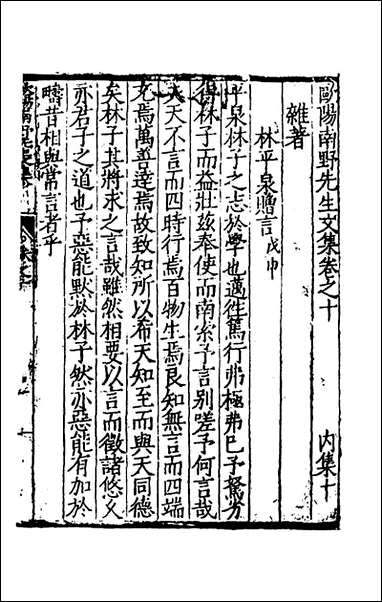 歐陽南野先生文集卷之十　內集十
雜著
林平泉贈言戊申
平泉林子之志於學也邁徃篤行弗極弗已予駑劣
得林子而益壯玆奉使而南索予言别嗟予何言哉
夫天不言而四時行焉百物生焉良知無言而四端
充焉萬善達焉故致知所以希天知至而與天同德
矣林子其將求之言哉雖然相要以言而徵諸悠久
亦君子之道也予惡能默於林子然亦惡能有加於
疇昔相與常言者乎